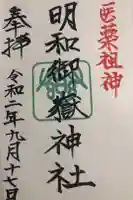 医薬祖神
明和御嶽神社
奉拝
令和二年九月十七日